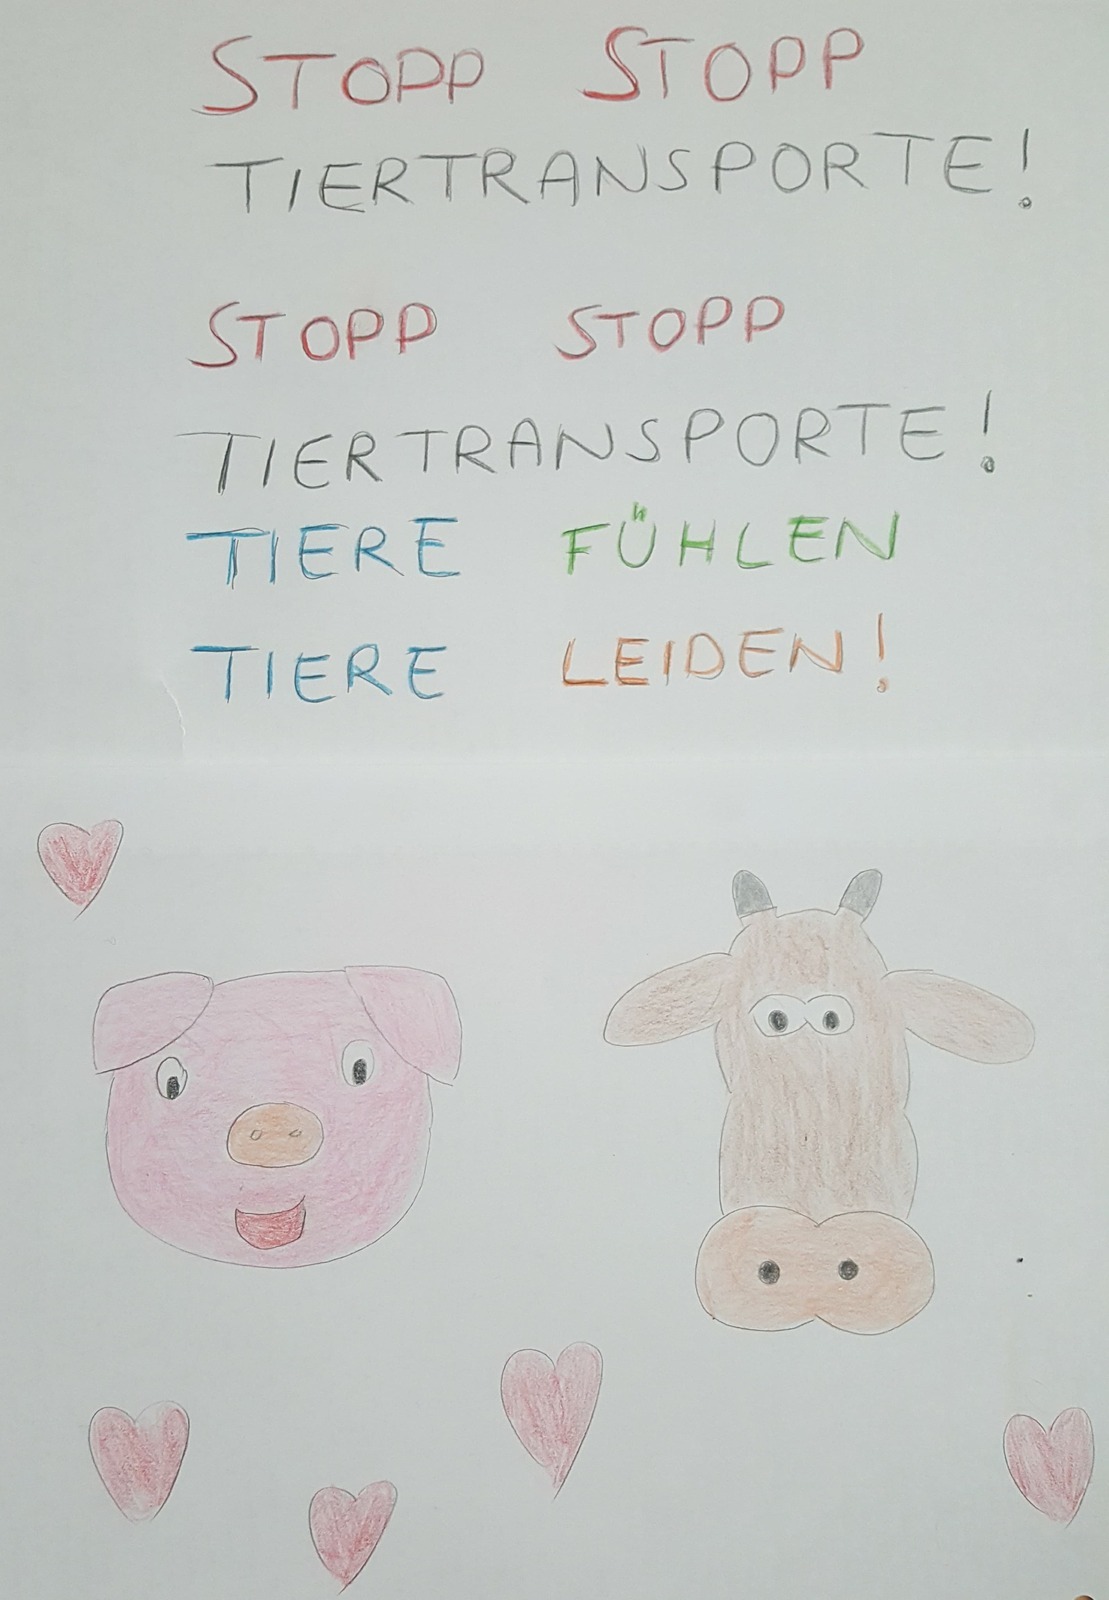 STOPP STOPP
TIERTRANSPORTE!
STOPP STOPP
TIERTRANSPORTE!
TIERE FÜHLEN
TIERE LEIDEN!